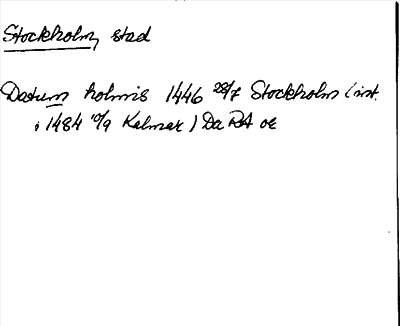 Stockholm, stad
Datum holmis 1446 28/7 Stockholm (int.
i 1484 10/9 Kalmar) Da RA oe